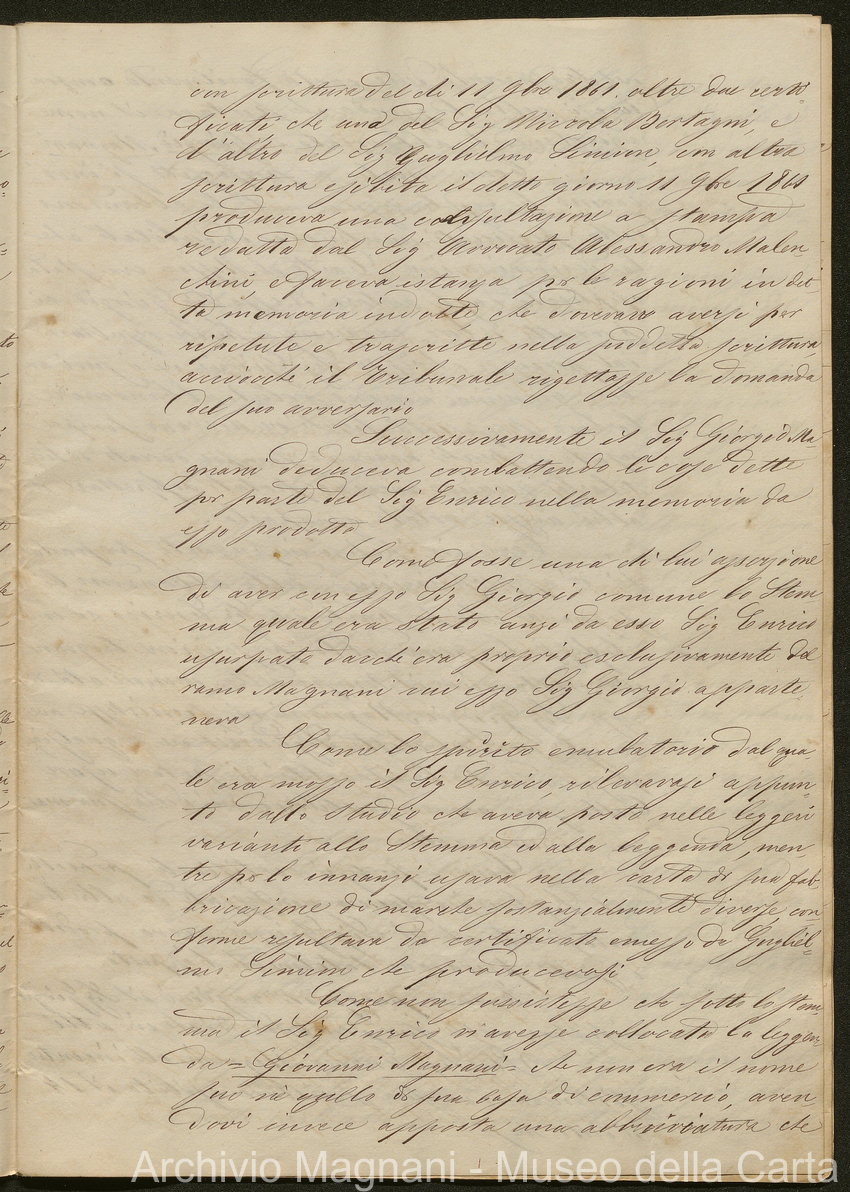 con scrittura del dì 11 9bre 1861. oltre due certi
ficati che uno del Sig Niccola Bertagni, e
l'altro del Sig Guglielmo Simion, con altra
scrittura esibita il detto giorno 11 9bre 1861
produceva una consultazione a stampa
redatta dal Sig Avvocato Alessandro Malen-
chini, e faceva istanza per le ragioni in det
ta memoria indotte, che dovevano aversi per
ripetute e trascritte nella suddetta scrittura
acciocché il Tribunale rigettasse la domanda
del suo avversario
Successivamente il Sig Giorgio Ma-
gnani deduceva combattendo le cose dette
per parte del Sig Enrico nella memoria da
esso prodotta
Come fosse una di lui asserzione
di aver con esso Sig Giorgio comune lo Stem-
ma quale era stato anzi da esso Sig Enrico
usurpato dacché era proprio esclusivamente del
ramo Magnani cui esso Sig Giorgio apparte-
neva
Come lo spirito emulatorio dal qua-
le era mosso il Sig Enrico, rilevavasi appun-
to dallo studio che aveva posto nelle leggeri
varianti allo Stemma ed alla leggenda, men-
tre per lo innanzi usava nella carta di sua fab-
bricazione di marche sostanzialmente diverse, con
forme resultava da certificato emesso da Gugliel-
mo Simion che producevasi
Come non sussistesse che sotto lo stem-
ma il Sig Enrico vi avesse collocato la leggen-
da = Giovanni Magnani = che non era il nome
suo nè quello di sua casa di commercio, aven
dovi invece apposta una abbreviatura che
Archivio Magnani - Museo della Carta